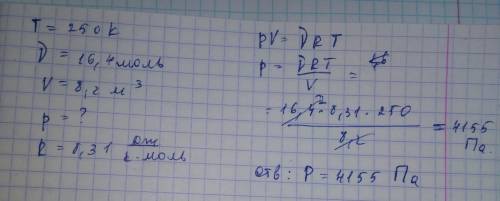 T = 250 K
D = 16,4 моль
V = 8,2 м³
p = ?
R = 8,31 дж / к·моль
pV = DRT
p = DRT / V =
= 16,4² · 8,31 · 250 / 8,2 = 4155 Па.
отв: P = 4155 Па